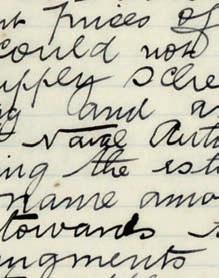 nt prices of
could not
upply Sche
ng and a
Naval Auth
ing the est
name amo
towards s
ngments